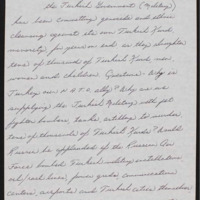 the Turkish Government (Military)
has been committing genocide and ethnic
cleansing against its own Turkish Kurd
minority for years in and as they slaughter
tens of thousands of Turkish Kurd men,
women and children. Question: Why is
Turkey our N.A.T.O. ally? Why are we
supplying the Turkish Military with jet
fighter bombers, tanks, artillery to murder
tens of thousands of Turkish Kurds? Would
Russia be applauded if the Russian Air
Force bombed Turkish military installations,
oil/refineries, power grids, communications
centers, airports and Turkish cities